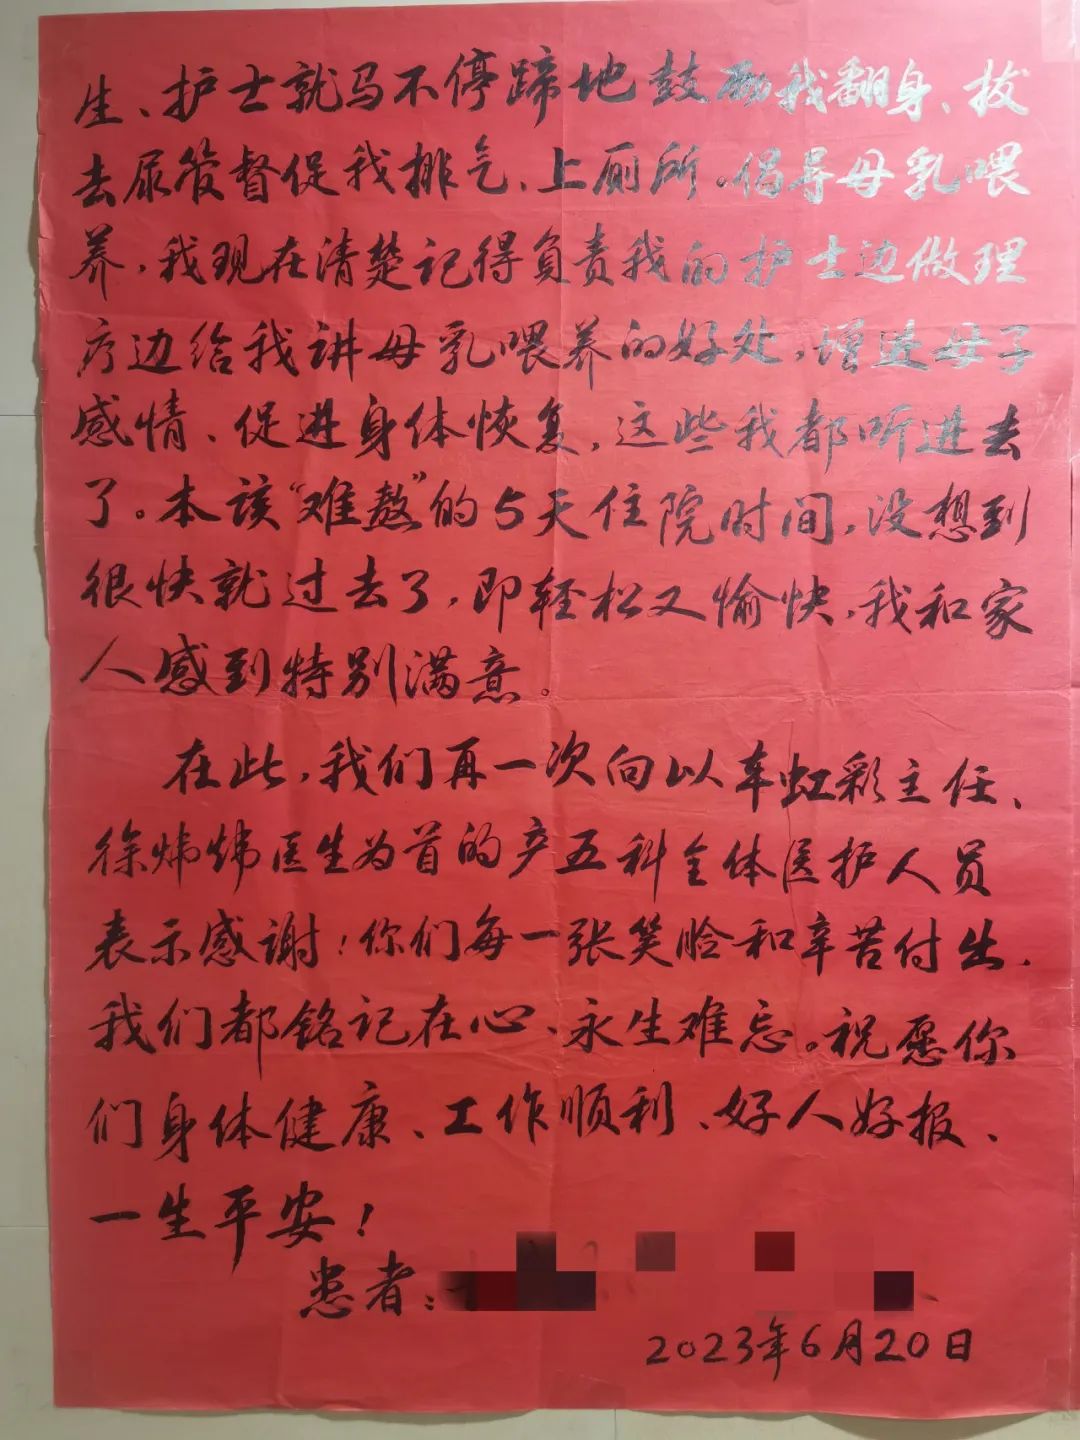 生、护士就马不停蹄地鼓励我翻身、拔
去尿管督促我排气、上厕所。倡导母乳喂
养，我现在清楚记得负责我的护士边做理
疗边给我讲母乳喂养的好处，增进母子
感情、促进身体恢复，这些我都听进去
了。本该“难熬”的5天住院时间，没想到
很快就过去了，即轻松又愉快，我和家
人感到特别满意。
在此，我们再一次向以车虹彩主任、
徐炜炜医生为首的产五科全体医护人员
表示感谢！你们每一张笑脸和辛苦付出，
我们都铭记在心、永生难忘。祝愿你
们身体健康、工作顺利、好人好报、
一生平安！
患者：
2023年6月20日